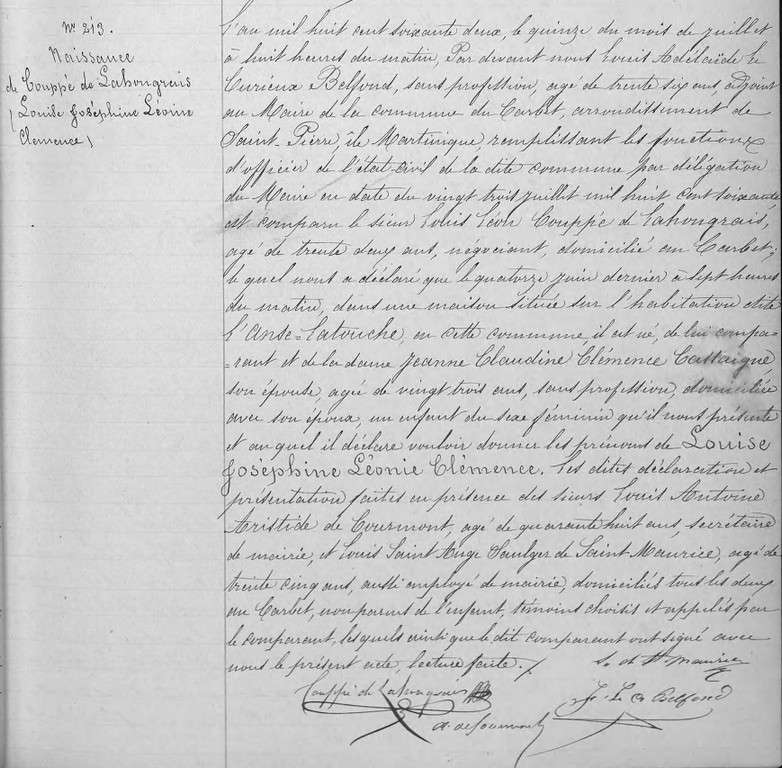 N° 213.
Naissance
de Couppé de Lahongrais
(Louise Joséphine Léonie
Clémence)
L'an mil huit cent soixante deux, le quinze du mois de juillet
à huit heures du matin, Par devant nous Louis Adélaïde Le
Curieux Belfond, sans profession, agé de trente six ans, adjoint
au Maire de la commune du Carbet, arrondissement de
Saint-Pierre, île Martinique, remplissant les fonctions
d'officier de l'état-civil de la dite commune par délégation
du Maire en date du vingt trois juillet mil huit cent soixante
est comparu le sieur Louis Léon Couppé de Lahongrais,
agé de trente deux ans, négociant, domicilié au Carbet,
le quel nous a déclaré que le quatorze juin dernier à sept heures
du matin, dans une maison située sur l'habitation dite
l'Anse=Latouche, en cette commune, il est né, de lui compa-
-rant et de la dame Jeanne Claudine Clémence Cassaigne
son épouse, agée de vingt trois ans, sans profession, domiciliée
avec son époux, un enfant du sexe féminin qu'il nous présente
et auquel il déclare vouloir donner les prénoms de Louise
Joséphine Léonie Clémence. Les dites déclaration et
présentation faites en présence des sieurs Louis Antoine
Aristide de Courmont, agé de quarante huit ans, secrétaire
de mairie, et Louis Saint Ange Vaulger de Saint Maurice, agé de
trente cinq ans, aussi employé de mairie, domiciliés tous les deux
au Carbet, non parens de l'enfant, témoins choisis et appelés par
le comparant, les quels ainsi que le dit comparant ont signé avec
nous le présent acte, lecture faite./.
de St Maurice
Couppé de Lahongrais
Le C Belfond
A. de Courmont